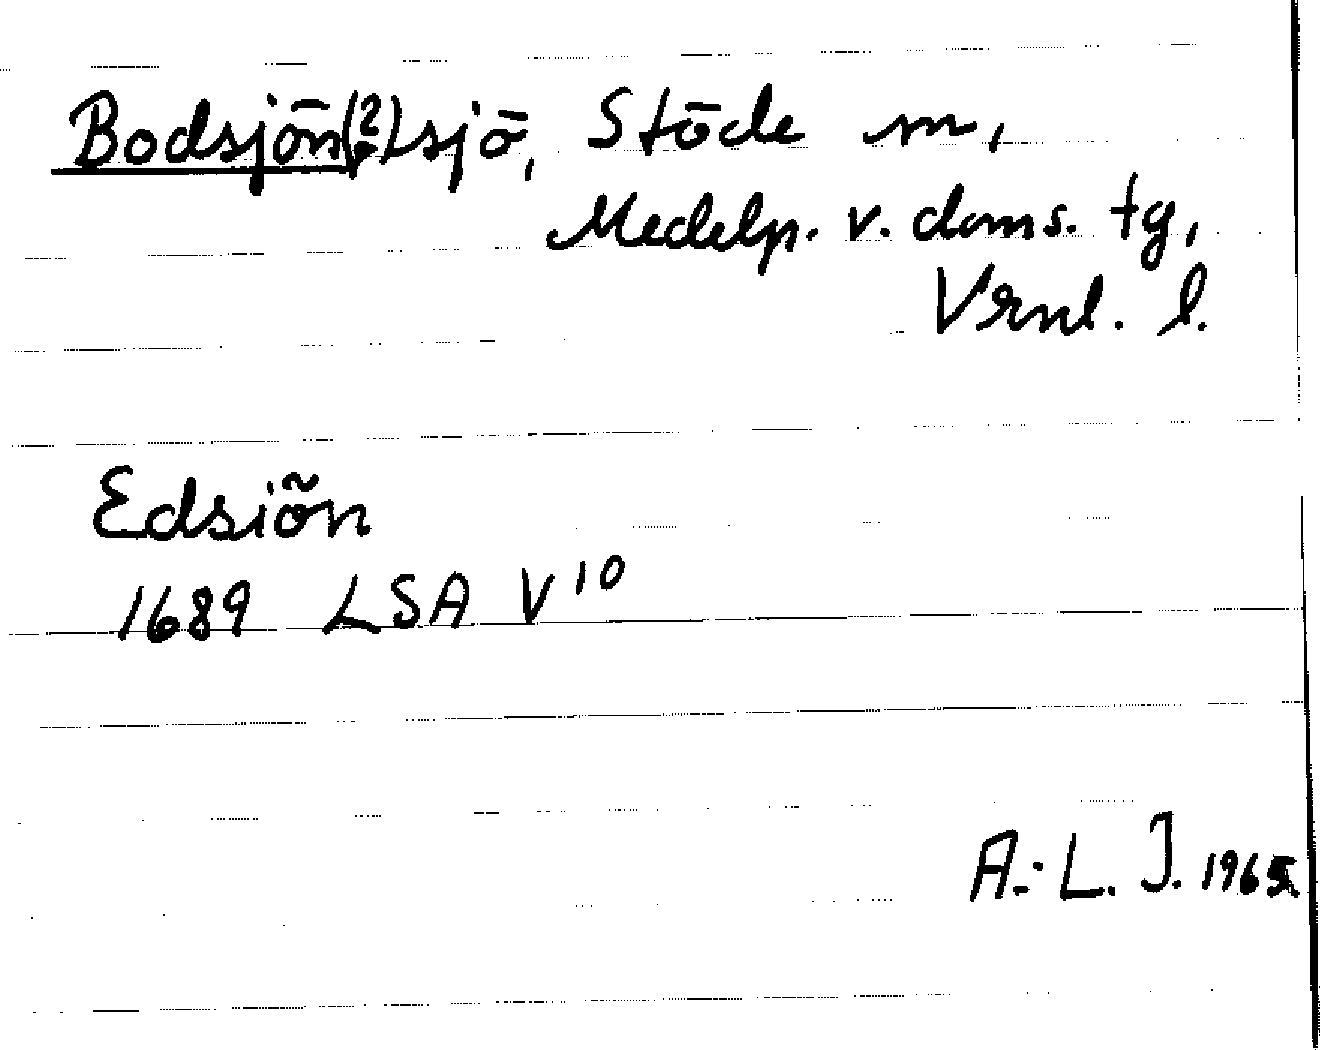 Bodsjön(?) sjö, Stöde sn,
Medelp. v. doms. tg,
Vrnl. l.
Edsiõn
1689 LSA V¹⁰
A.-L. J. 1965